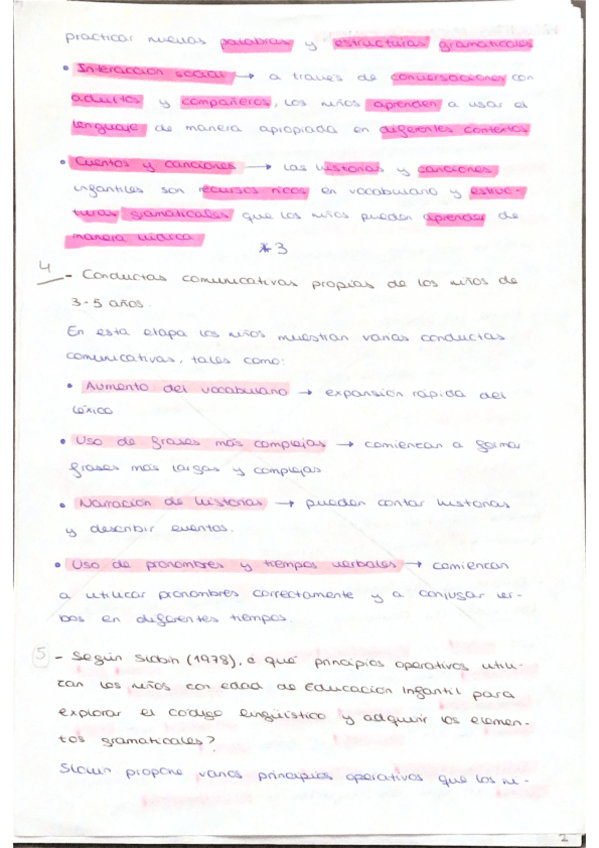 practicar nuevas palabras y estructuras gramaticales
• Interacción social → a través de conversaciones con
adultos y compañeros, los niños aprenden a usar el
lenguaje de manera apropiada en diferentes contextos
• Cuentos y canciones → las historias y canciones
infantiles son recursos ricos en vocabulario y estruc-
turas gramaticales que los niños pueden aprender de
manera lúdica.
* 3
4 - Conductas comunicativas propias de los niños de
3-5 años.
En esta etapa los niños muestran varias conductas
comunicativas, tales como:
• Aumento del vocabulario → expansión rápida del
léxico
• Uso de frases más complejas → comienzan a formar
frases más largas y complejas
• Narración de historias → pueden contar historias
y describir eventos.
• Uso de pronombres y tiempos verbales → comienzan
a utilizar pronombres correctamente y a conjugar ver-
bos en diferentes tiempos.
5 - Según Slobin (1978), ¿ qué principios operativos utili-
zan los niños con edad de Educación Infantil para
explorar el código lingüístico y adquirir los elemen-
tos gramaticales?
propone varios principios operativos que los ni-
2